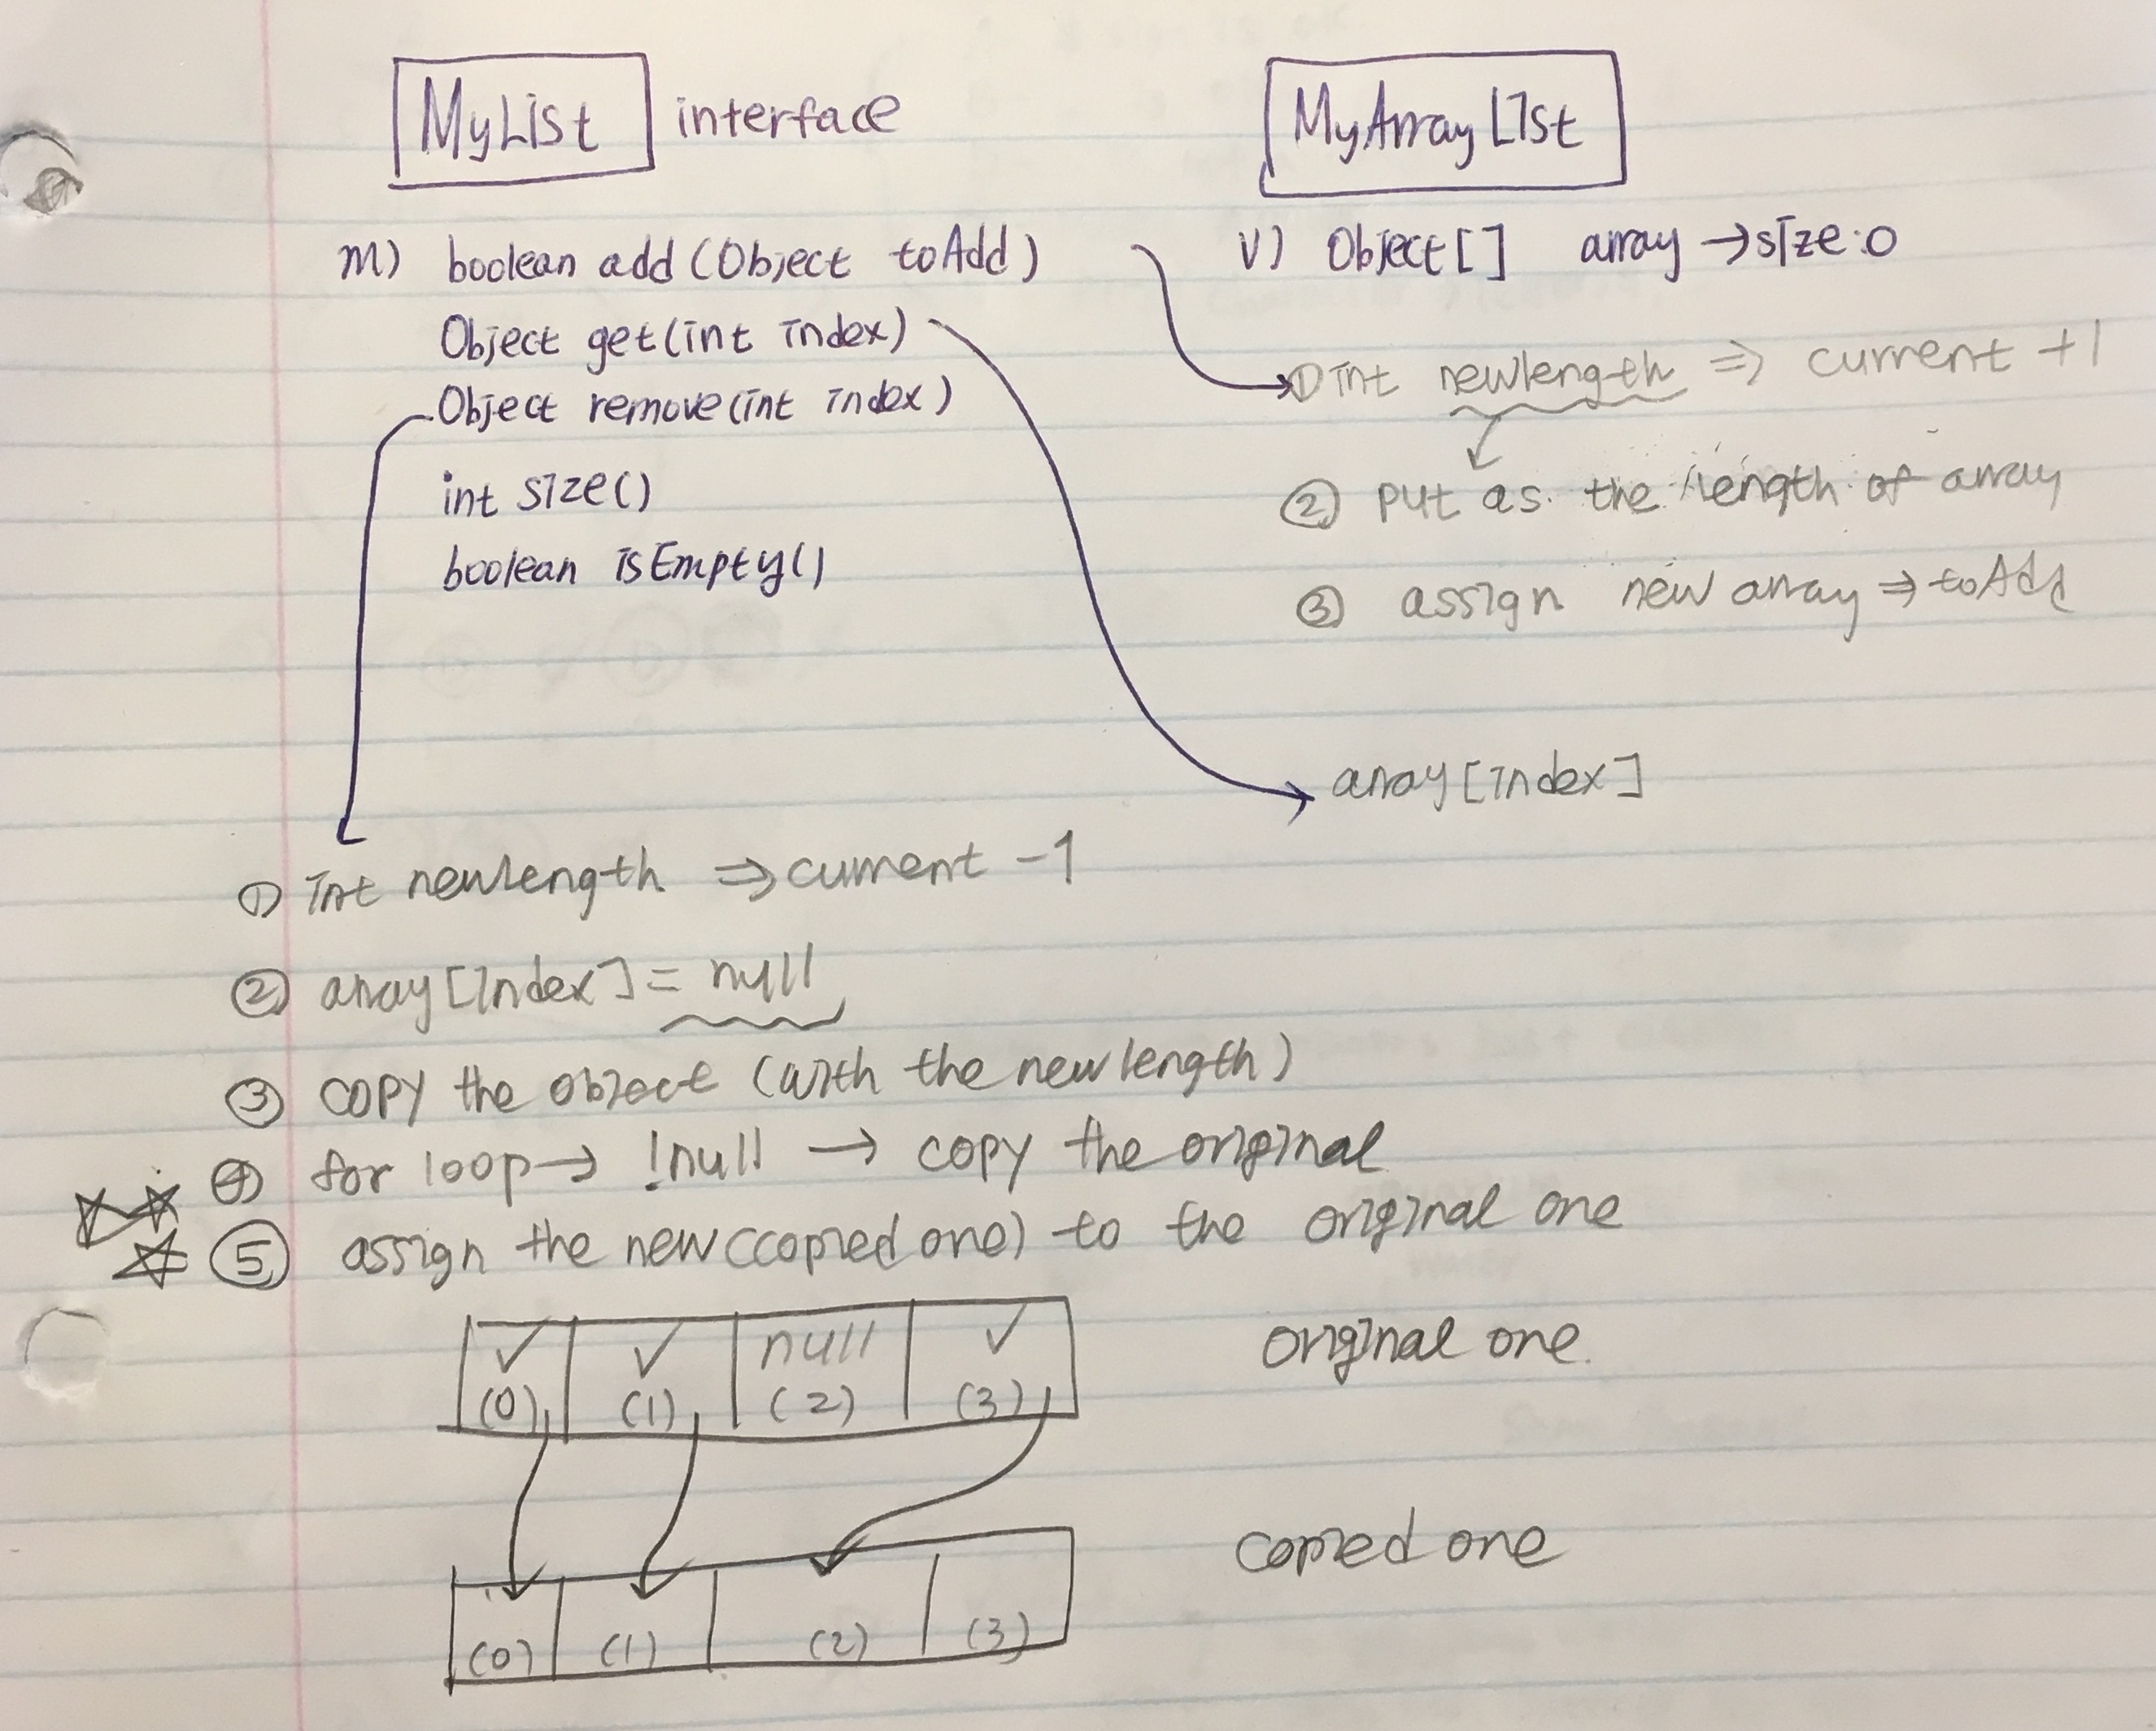 MyList interface
m) boolean add (Object toAdd)
Object get(int index)
Object remove(int index)
int size()
boolean isEmpty()
MyArrayList
v) Object[] array → size:0
① int newlength ⇒ current +1
② put as the length of array
③ assign new array ⇒ toAdd
array[index]
① int newlength ⇒ current -1
② array[index] = null
③ copy the object (with the new length)
④ for loop → !null → copy the original
⑤ assign the new (copied one) to the original one
null
(0) (1) (2) (3)
original one.
(0) (1) (2) (3)
copied one